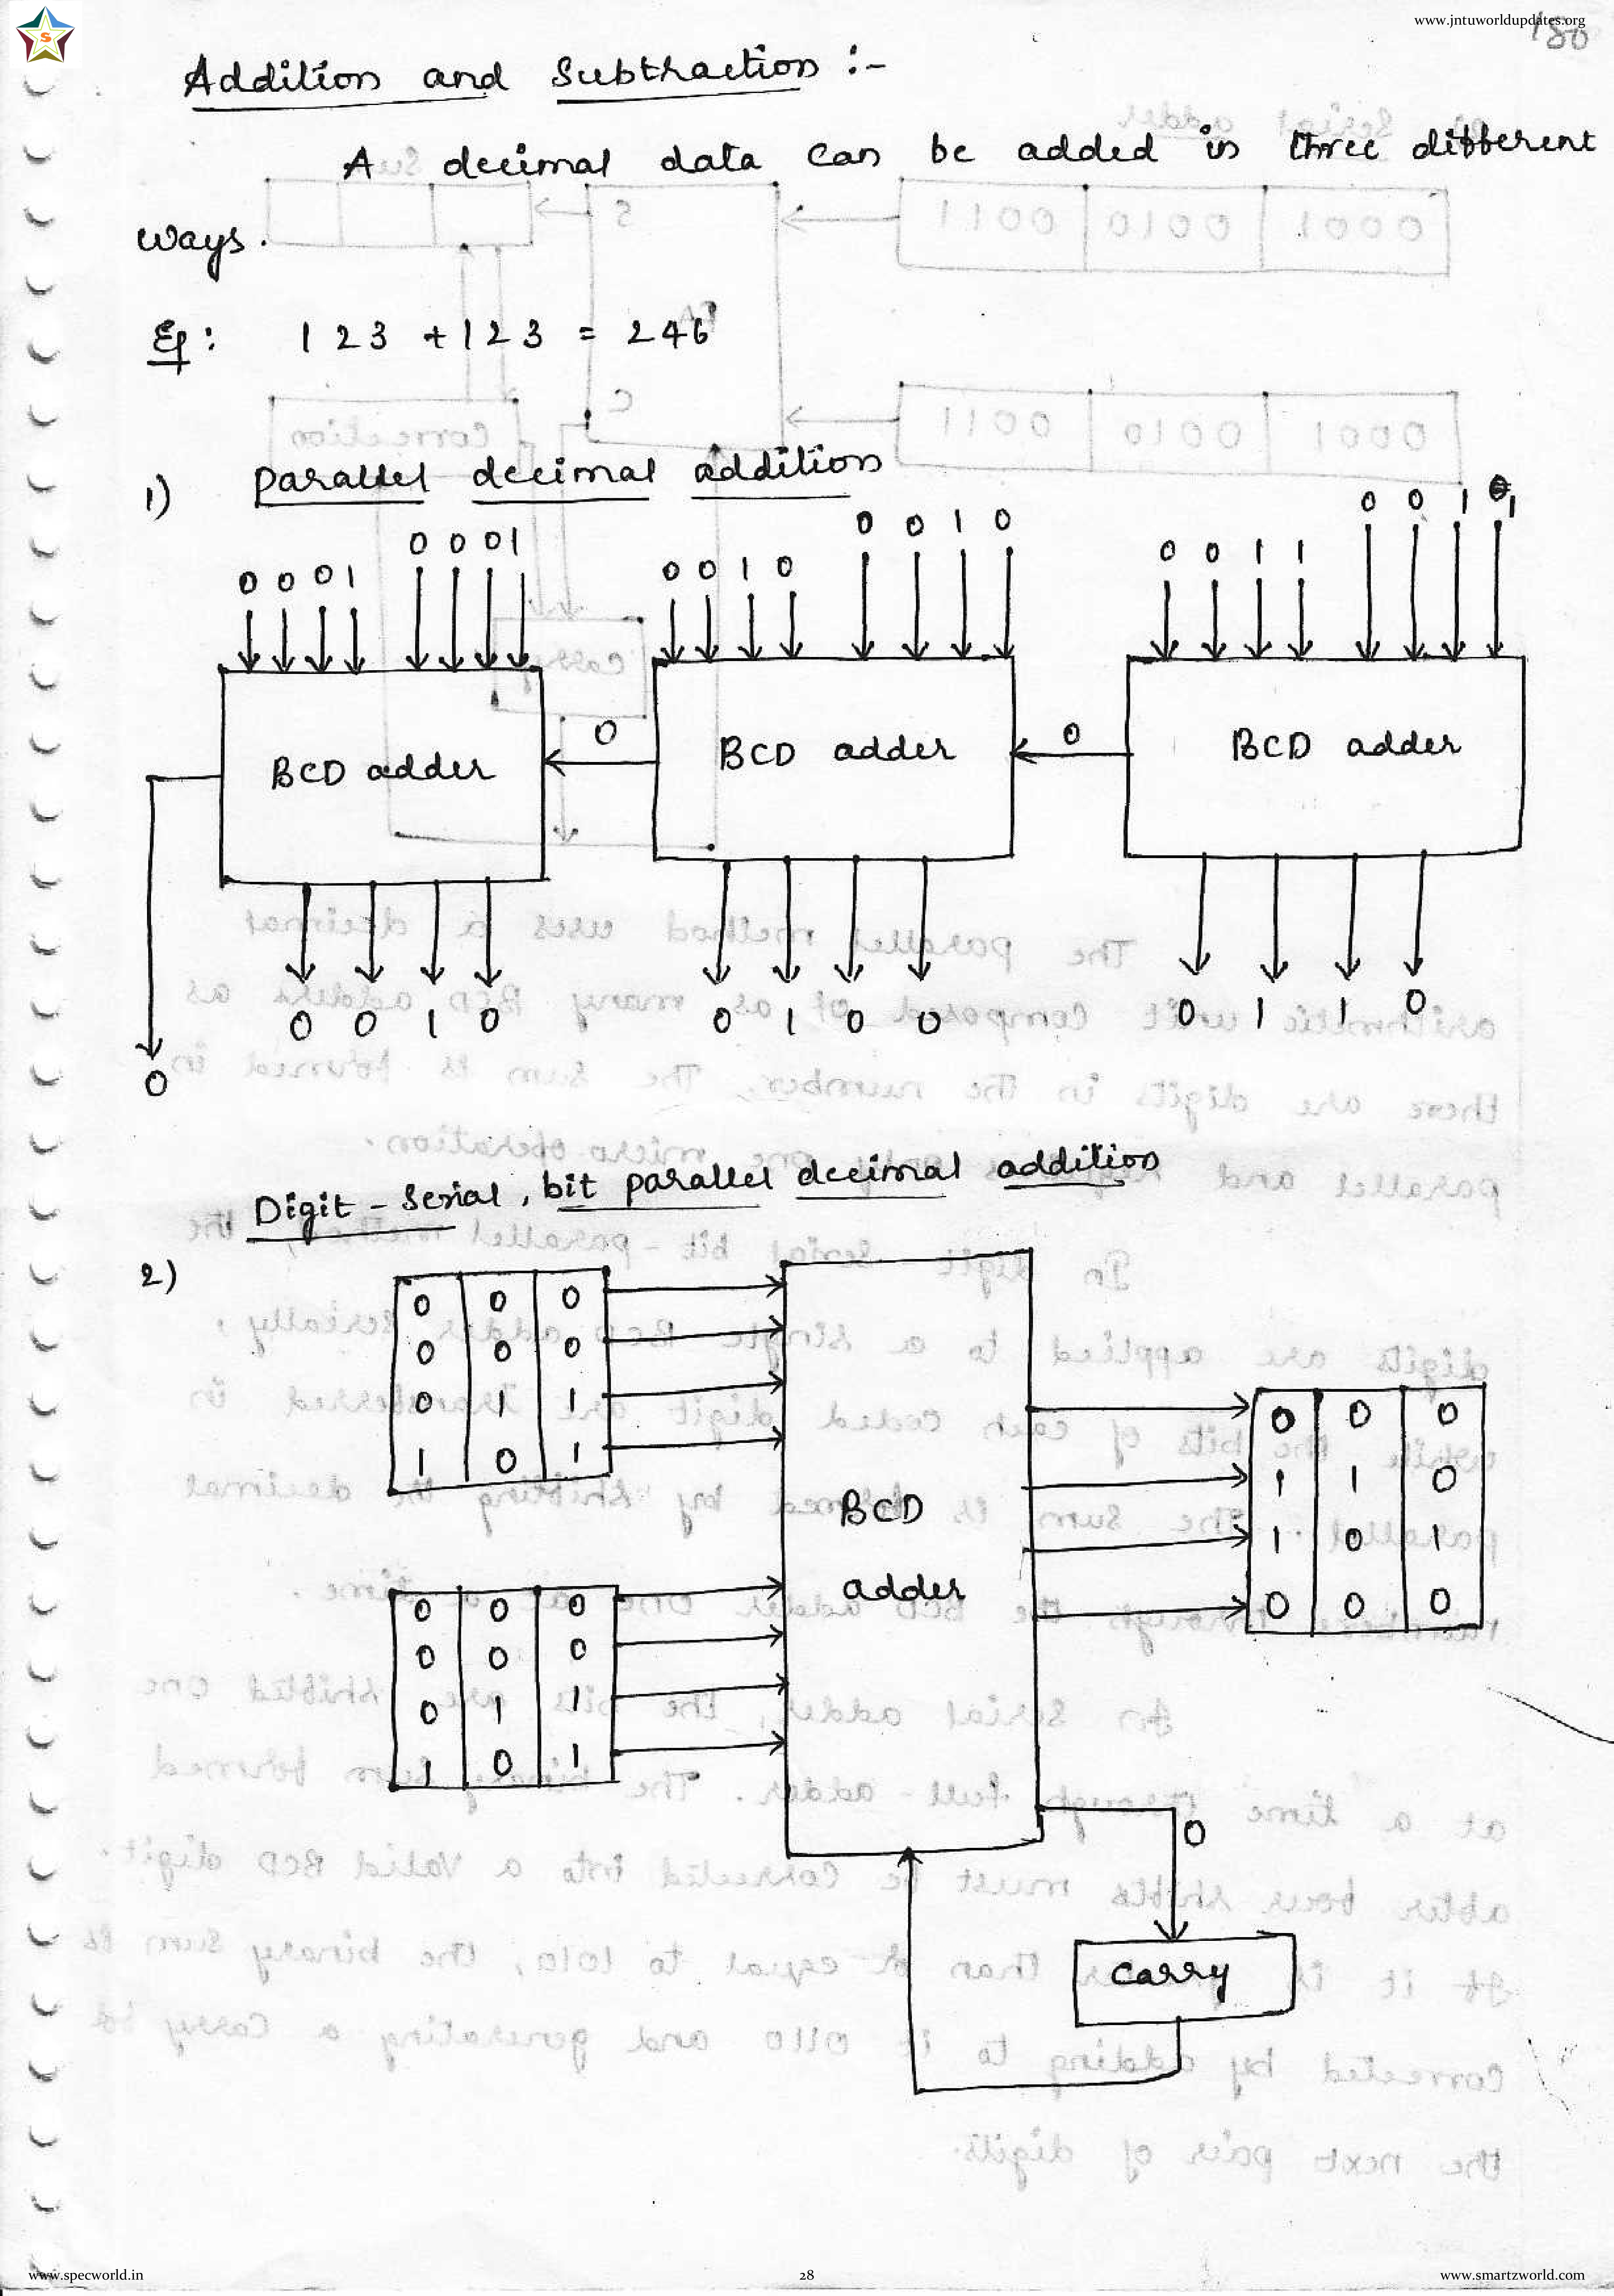 www.jntuworldupdates.org
180
S
Addition and Subtraction :-
A decimal data can be added in three different
ways.
Eg: 123 + 123 = 246
1) Parallel decimal addition
0 0 0 1 0 0 0 1 0 0 1 0 0 0 1 0 0 0 1 1 0 0 1 1
BCD adder 0 BCD adder 0 BCD adder
0 0 1 0 0 1 0 0 0 1 1 0
0
Digit - Serial, bit parallel decimal addition
2)
0 0 0
0 0 0
0 1 1
1 0 1
0 0 0
0 0 0
0 1 1
1 0 1
BCD
adder
0 0 0
1 1 0
1 0 1
0 0 0
0
Carry
www.specworld.in
28
www.smartzworld.com